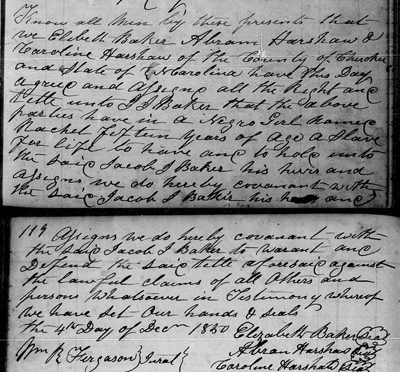 Know all Men by these presents that
we Elibeth Baker Abram Harshaw &
Caroline Harshaw of the County of Cherokee
and State of N Carolina have this Day
agree and Assigne all the Right and
title unto J J Baker that the above
parties have in a Negro Girl Named
Rachel forteen years of Age a Slave
for life to have and to hole unto
the saic Jacob J Baker his heirs and
Assigns we do hereby covanant with
the saic Jacob J Baker his and
119 Assigns we do hereby covanant with
the saic Jacob J Baker to warant and
Defend the saic title aforesaic against
the lawful claims of all Others and
persons Whatsoever in Testimony Whereof
we have Set Our hands & Seals
the 4th Day of Decm 1850 Elizabeth Baker Seal
Wm R Fergason Jurat Abram Harshaw Seal
Caroline Harshaw Seal